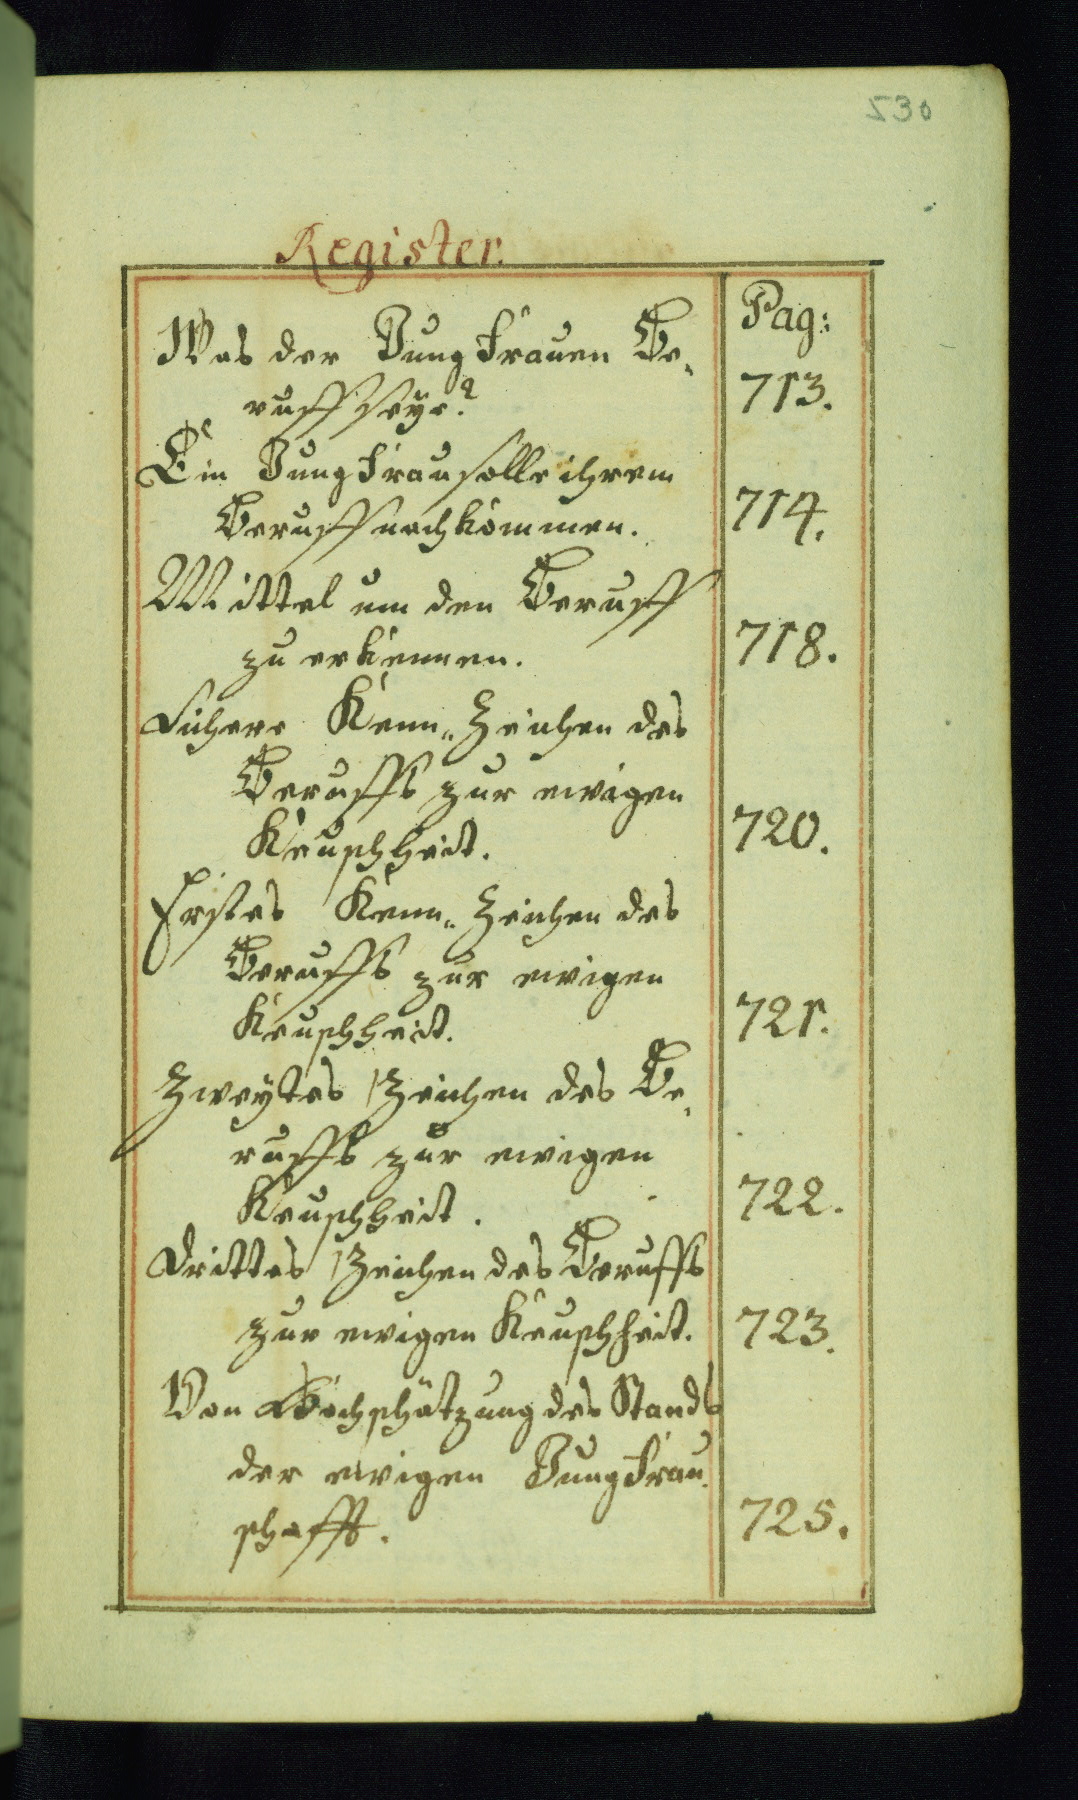 530
Register.
Pag:
Was der Jungfrauen Be,
ruff seye? 713.
Ein Jungfrau solle ihrem
Beruff nachkommen. 714.
Mittel um den Beruff
zu erkennen. 718.
Sichere Kenn„Zeichen des
Beruffs zur ewigen
Keuschheit. 720.
Erstes Kenn„Zeichen des
Beruffs zur ewigen
Keuschheit. 721.
Zweytes Zeichen des Be,
ruffs zur ewigen
Keuschheit. 722.
Drittes Zeichen des Beruffs
zur ewigen Keuschheit. 723.
Von Hochschätzung des Stands
der ewigen Jungfrau,
schafft. 725.